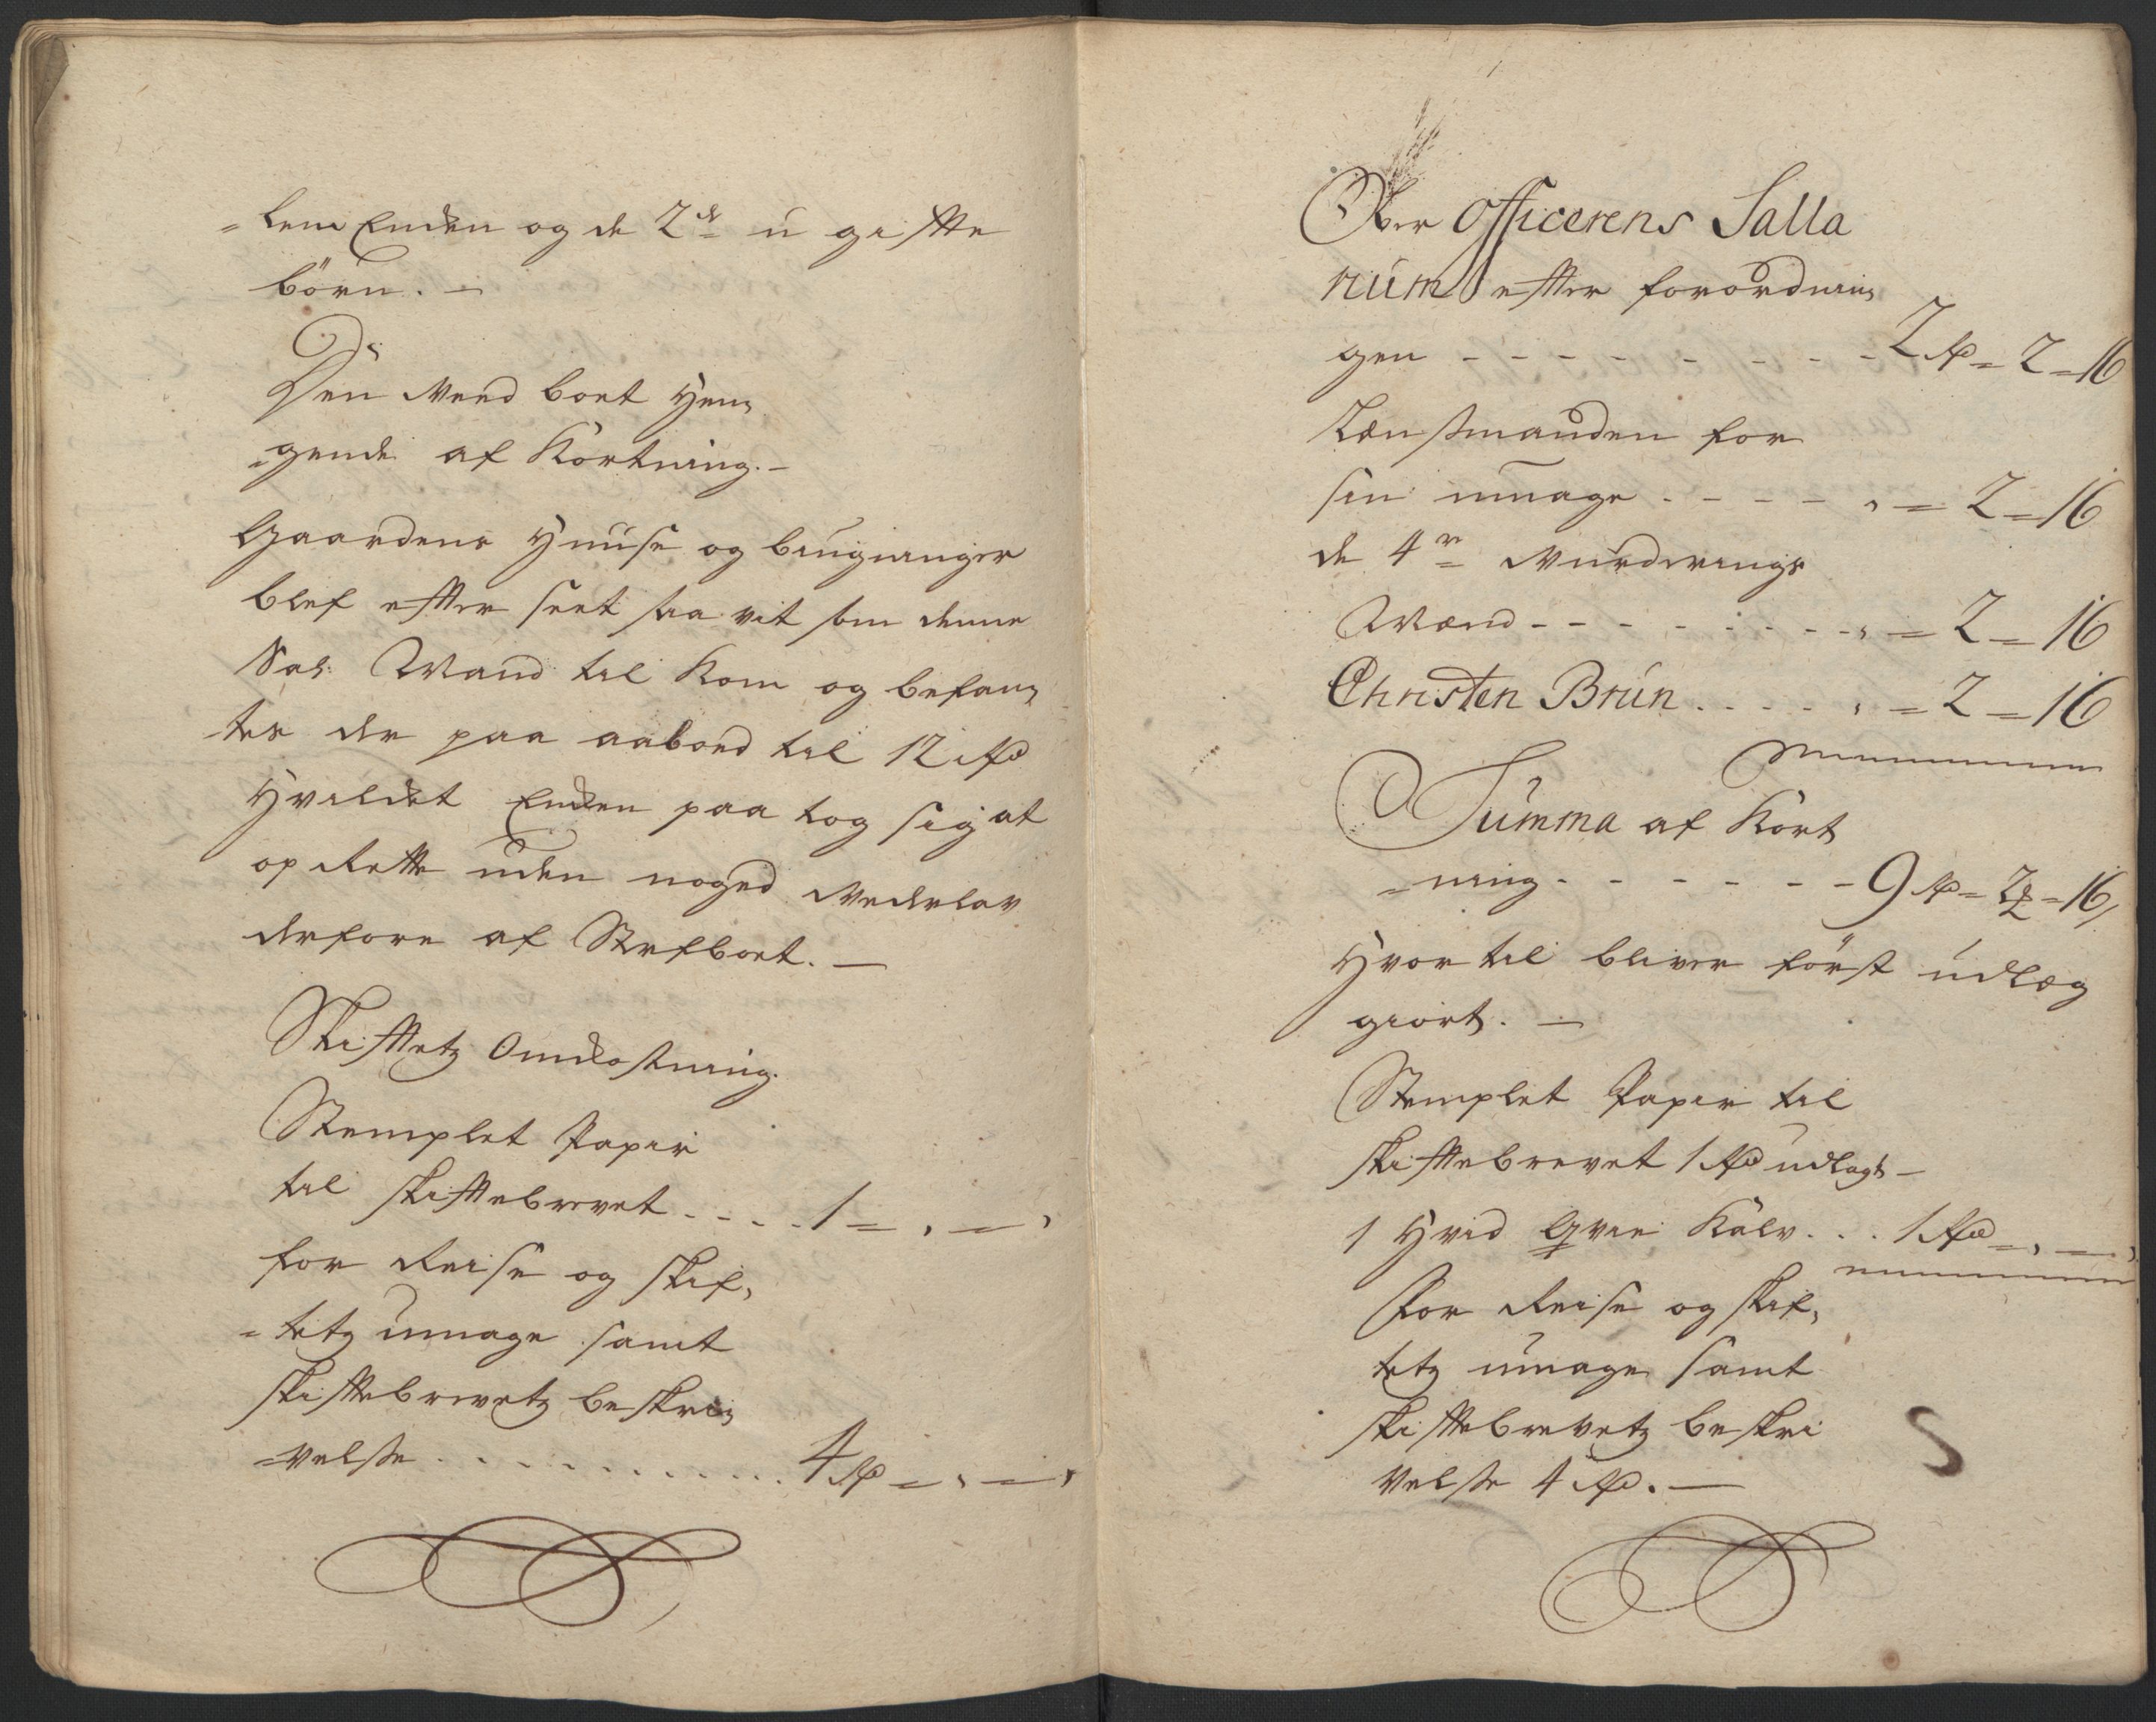 =lem Enken og de 2de u gifte
börn. –
Den Med boet Hen,
=gende af Kortning. –
Gaardens Huuse og bÿugninger
blef efter seet saa vit som denne
Sal: Mand til Kom og befan,
tes der paa aabord til 12 rd
Hvilcket Enken paa tog sig at
op Rette uden noged Vederlav
derfore af Sterfboet. –
Skifftetz Omkostning.
Stemplet Papir
til skifftebrevet .... 1 = , = ,
for Reise og skif,
=tetz umage samt
skifftebrevetz beskri,
=velse ............ 4 rd = , = ,
Over Officerens Salla
rium efter forordnin,
gen - - - - - - - - 2 rd = 2 = 16
Lænssmanden for
sin umage - - - - - , = 2 = 16
de 4re Vurderings
Mænd - - - - - - - - , = 2 = 16
Christen Brun . . . . . , = 2 = 16
Summa af Kort
=ning - - - - - - - 9 rd = 2 = 16
Hvor til bliver först udlæg
giort. –
Stemplet Papir til
skifftebrevet 1 rd udlagt –
1 Hvid Qvie Kalv . . . 1 rd = , = ,
For Reise og skif,
tetz umage samt
skifftebrevetz beskri
velse 4 rd. –